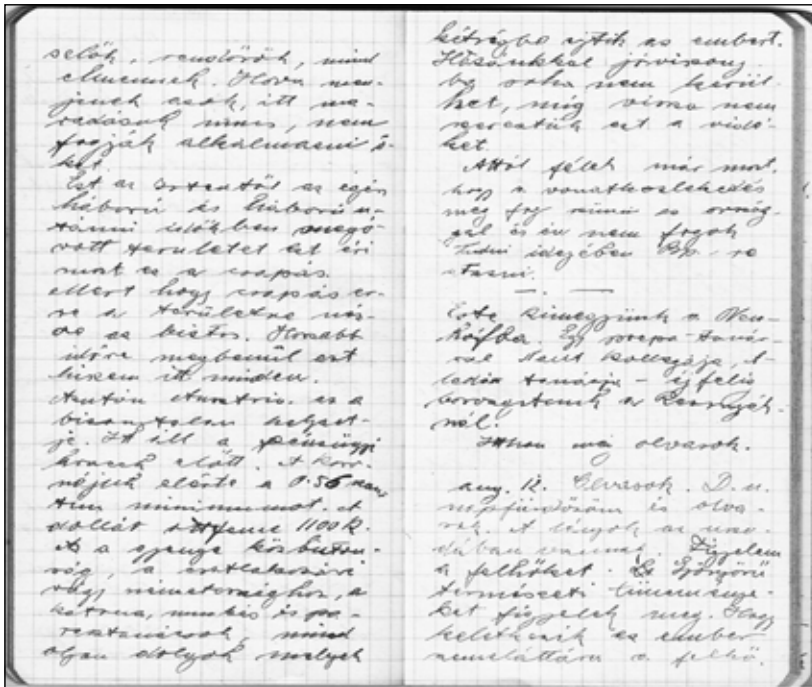 selők, rendőrök, mind
elmennek. Hova men-
jenek azok, itt ma-
radásuk nincs, nem
fogják alkalmazni ő-
ket.
Ezt az egész
háború és háború u-
tánni időkben megó-
vott területet ezt éri
most ez a csapás.
Mert hogy csapás er-
re a területre néz-
ve az biztos. Hosszabb
időre megbénul ezt
hiszem itt minden.
Azután Ausztria. ez a
bizonytalan helyzet-
je. Itt áll a pénzügyi
krach előtt. A koro-
nájuk elérte a 0.56
minimumot. A
dollár 1100 K.
És a gyenge közbizton-
ság, a csatlakozási
vágy németországhoz, a
katona, munkás és pa-
raszttanácsok, mind
olyan dolgok melyek
kétségbe ejtik az embert.
Hozzánkkal jó viszony-
ba soha nem kerül-
het, míg vissza nem
szereztük ezt a vidé-
ket.
Attól félek már most,
hogy a vonatközlekedés
meg fog szünni az ország-
gal és én nem fogok
tudni idejében Bp.-re
utazni.
Este kimegyünk a Neu-
hófba. Egy tanár-
ral Nani kollegája,
tanárja - éjfélig
borozgatunk a
nál.
Itthon még olvasok.
aug. 12. Olvasok. D. u.
napfürdőzöm és olva-
sok. A lányok az uszo-
dában vannak. Figyelem
a felhőket. Gyönyörű
természeti tüneménye-
ket figyelek meg. Hogy
keletkezik az ember
szemeláttára a felhő.